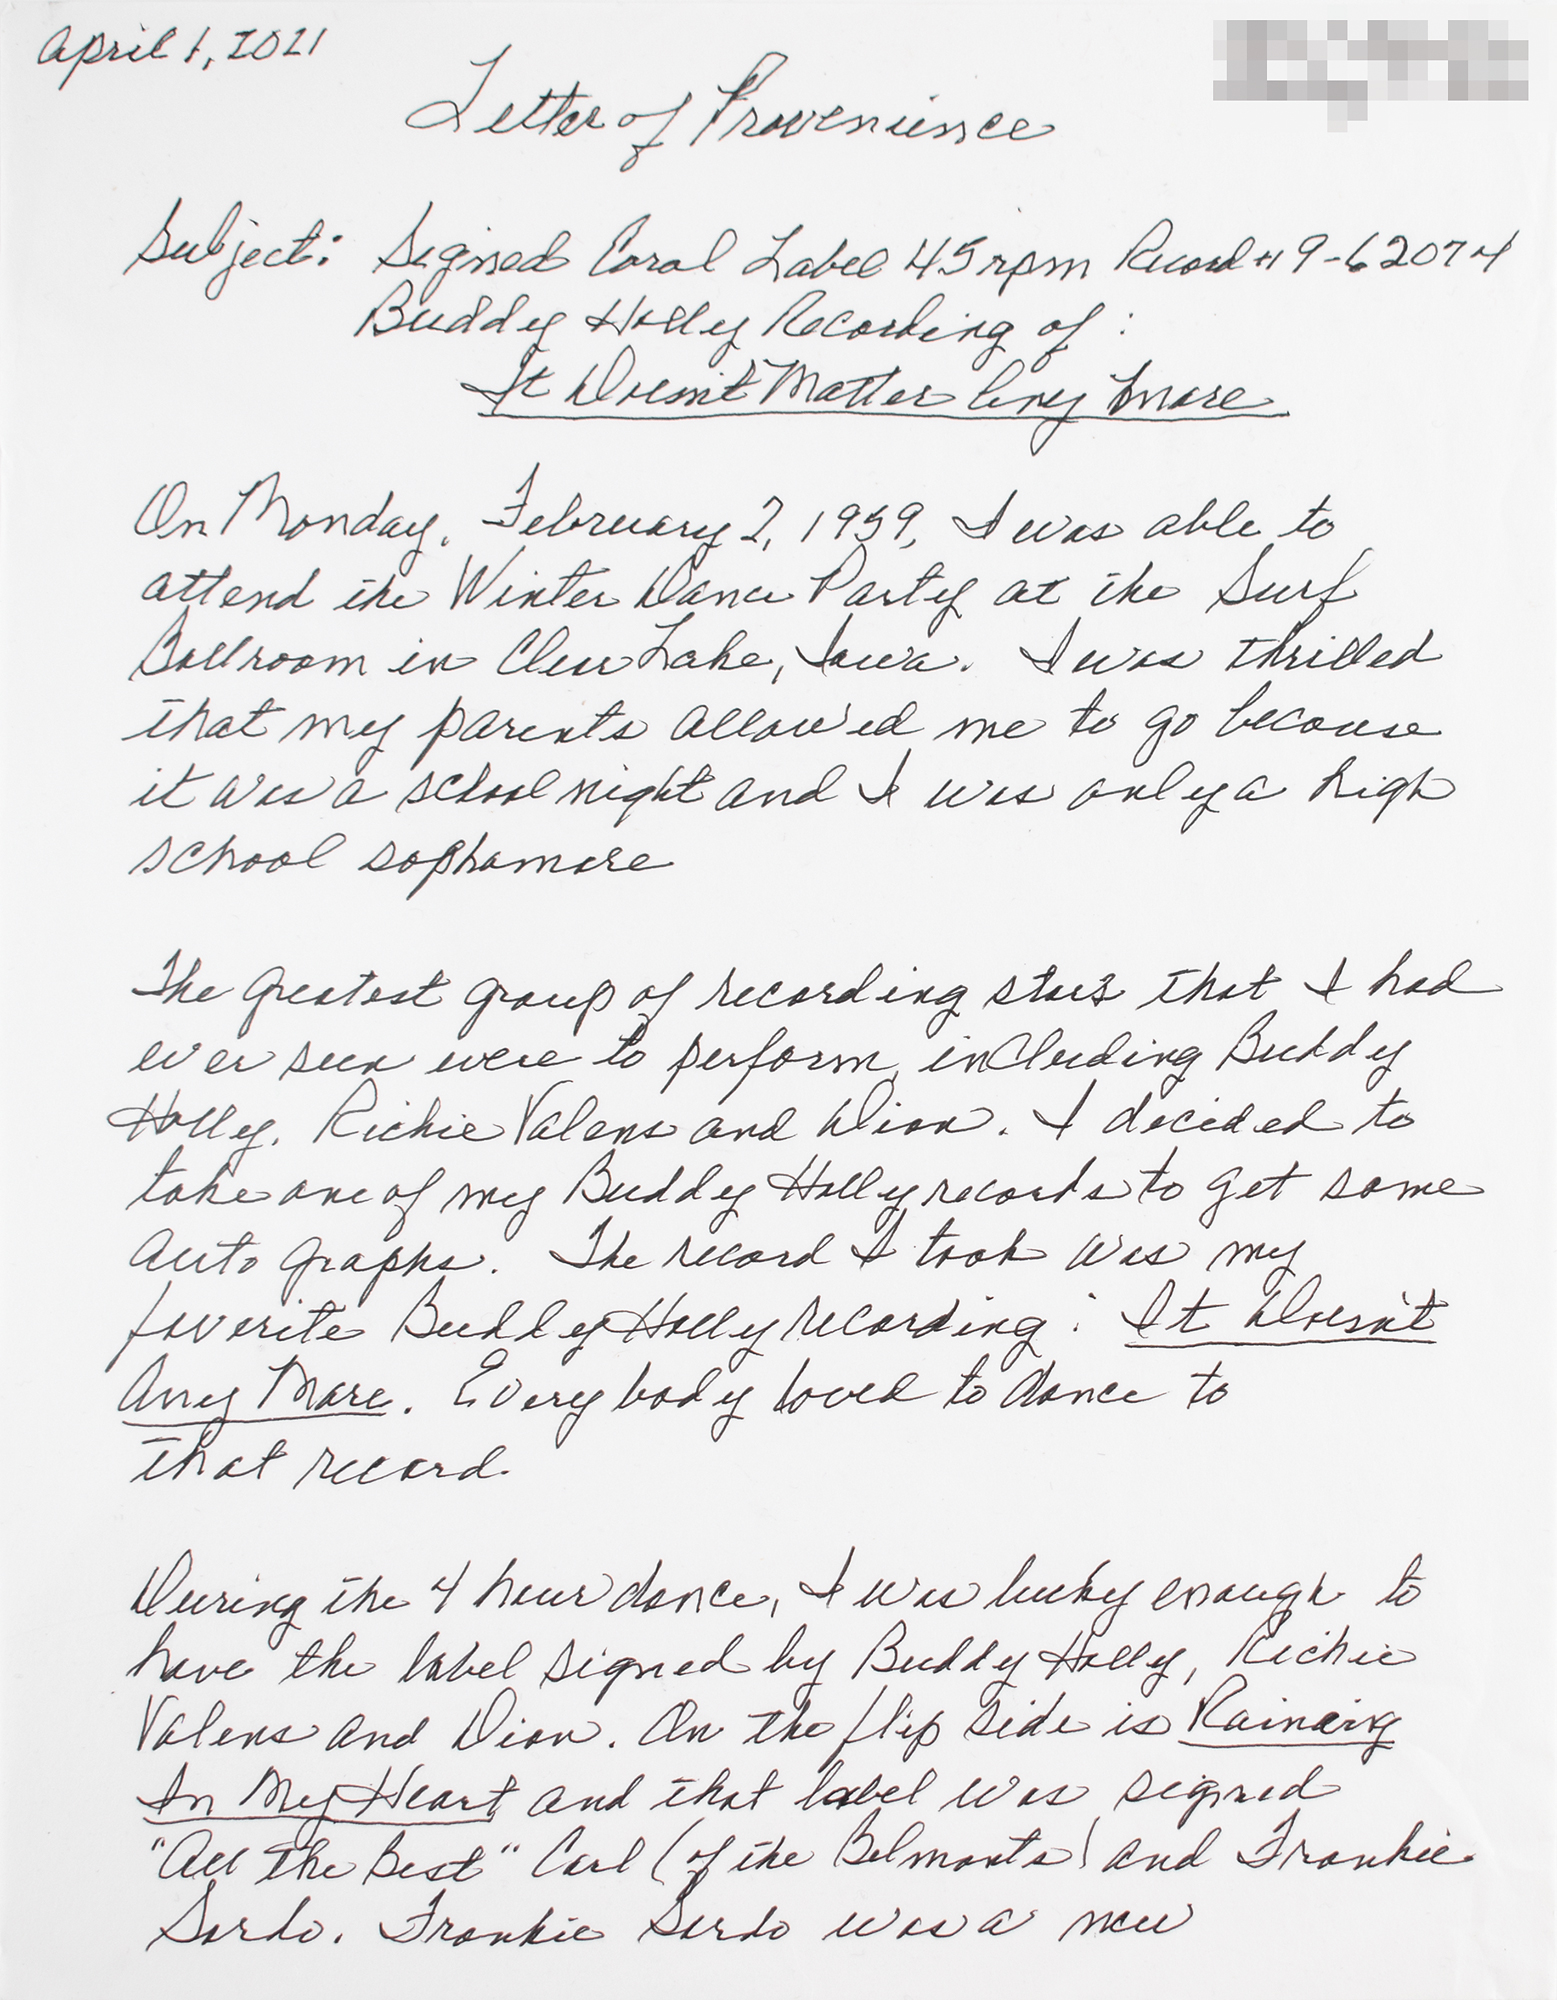 April 1, 2021
Letter of Provenience
Subject: Signed Coral Label 45 rpm Record #9-62074
Buddy Holly Recording of:
It Doesn't Matter Any More
On Monday, February 2, 1959, I was able to
attend the Winter Dance Party at the Surf
Ballroom in Clear Lake, Iowa. I was thrilled
that my parents allowed me to go because
it was a school night and I was only a high
school sophomore
The greatest group of recording stars that I had
ever seen were to perform, including Buddy
Holly, Richie Valens and Dion. I decided to
take one of my Buddy Holly records to get some
autographs. The record I took was my
favorite Buddy Holly recording: It Doesn't
Any More. Everybody loved to dance to
that record.
During the 4 hour dance, I was lucky enough to
have the label signed by Buddy Holly, Richie
Valens and Dion. On the flip side is Raining
In My Heart and that label was signed
"All the Best" Carl (of the Belmonts) and Frankie
Sardo. Frankie Sardo was a new